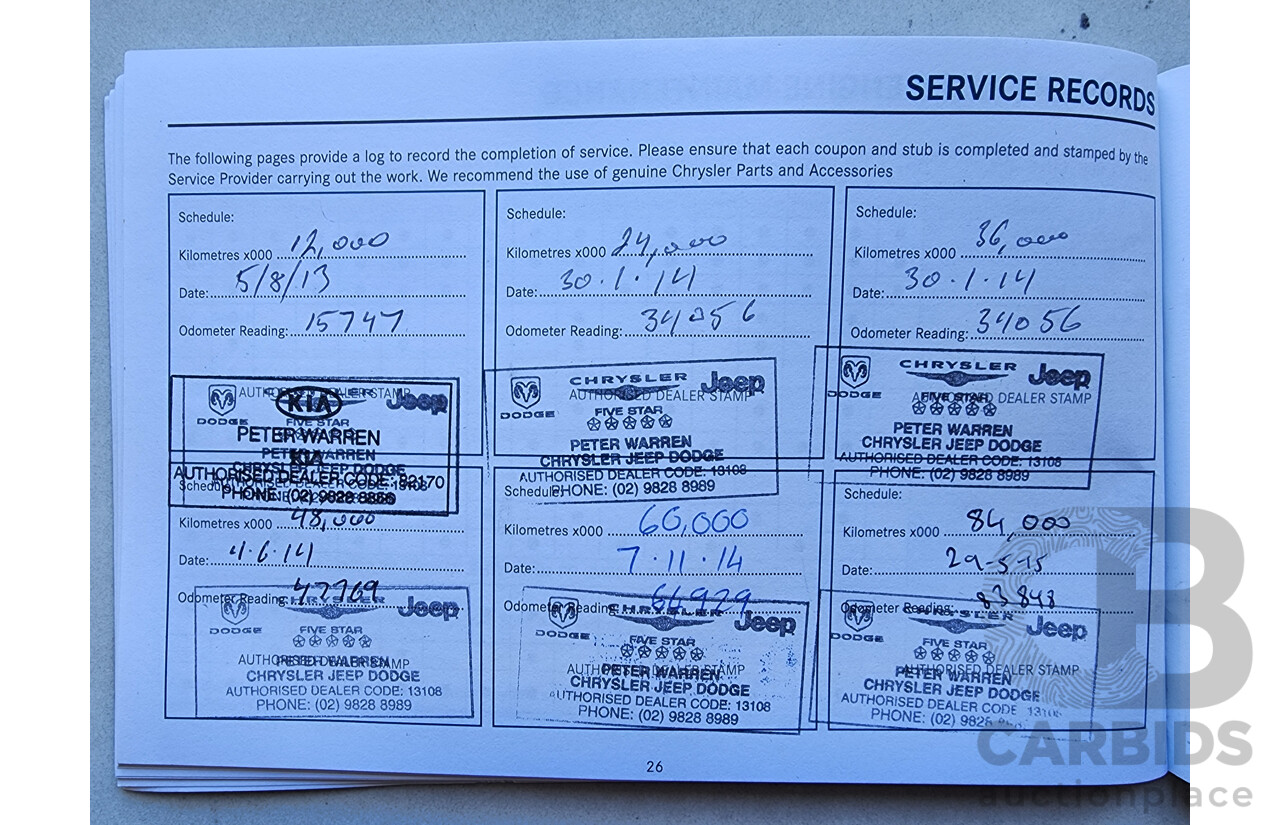 SERVICE RECORDS
The following pages provide a log to record the completion of service. Please ensure that each coupon and stub is completed and stamped by the
Service Provider carrying out the work. We recommend the use of genuine Chrysler Parts and Accessories
Schedule:
Kilometres x000 12,000
Date: 5/8/13
Odometer Reading: 15747
AUTHORISED DEALER STAMP
KIA
Jeep
DODGE
FIVE STAR
PETER WARREN
KIA
PETER WARREN
CHRYSLER JEEP DODGE
AUTHORISED DEALER CODE: 92170
AUTHORISED DEALER CODE: 13108
PHONE: (02) 9828
Schedule:
Kilometres x000 24,000
Date: 30.1.14
Odometer Reading: 34056
CHRYSLER
Jeep
AUTHORISED DEALER STAMP
DODGE
FIVE STAR
PETER WARREN
CHRYSLER JEEP DODGE
AUTHORISED DEALER CODE: 13108
PHONE: (02) 9828 8989
Schedule:
Kilometres x000 36,000
Date: 30.1.14
Odometer Reading: 34056
CHRYSLER
Jeep
DODGE
AUTHORISED DEALER STAMP
FIVE STAR
PETER WARREN
CHRYSLER JEEP DODGE
AUTHORISED DEALER CODE: 13108
PHONE: (02) 9828 8989
Schedule:
Kilometres x000 48,000
Date: 4.6.14
Odometer Reading: 47769
CHRYSLER
Jeep
DODGE
FIVE STAR
AUTHORISED DEALER STAMP
PETER WARREN
CHRYSLER JEEP DODGE
AUTHORISED DEALER CODE: 13108
PHONE: (02) 9828 8989
Schedule:
Kilometres x000 60,000
Date: 7.11.14
Odometer Reading: 66929
CHRYSLER
Jeep
DODGE
FIVE STAR
AUTHORISED DEALER STAMP
PETER WARREN
CHRYSLER JEEP DODGE
AUTHORISED DEALER CODE: 13108
PHONE: (02) 9828 8989
Schedule:
Kilometres x000 84,000
Date: 29-5-15
Odometer Reading: 83848
CHRYSLER
Jeep
DODGE
FIVE STAR
AUTHORISED DEALER STAMP
PETER WARREN
CHRYSLER JEEP DODGE
AUTHORISED DEALER CODE: 13108
PHONE: (02) 982
26
B
CARBIDS
auctionplace